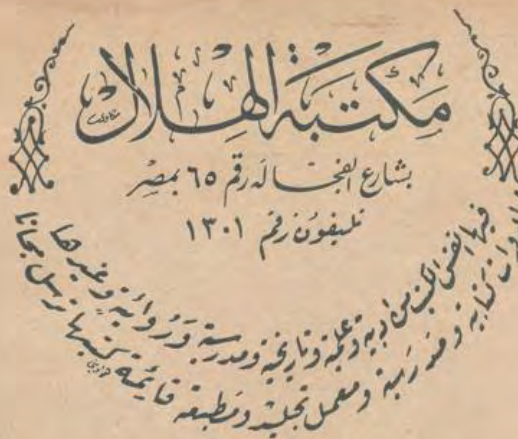 مكتبة الهلال
بشارع الفجالة رقم ٦٥ بمصر
تليفون رقم ١٣٠١
فيها انفس الكتب من ادبية وعلمية وتاريخية ومدرسية وروائية وغيرها
وادوات كتابية ومدرسية ومعمل تجليد ومطبعه قايمة كتبها ترسل مجانا